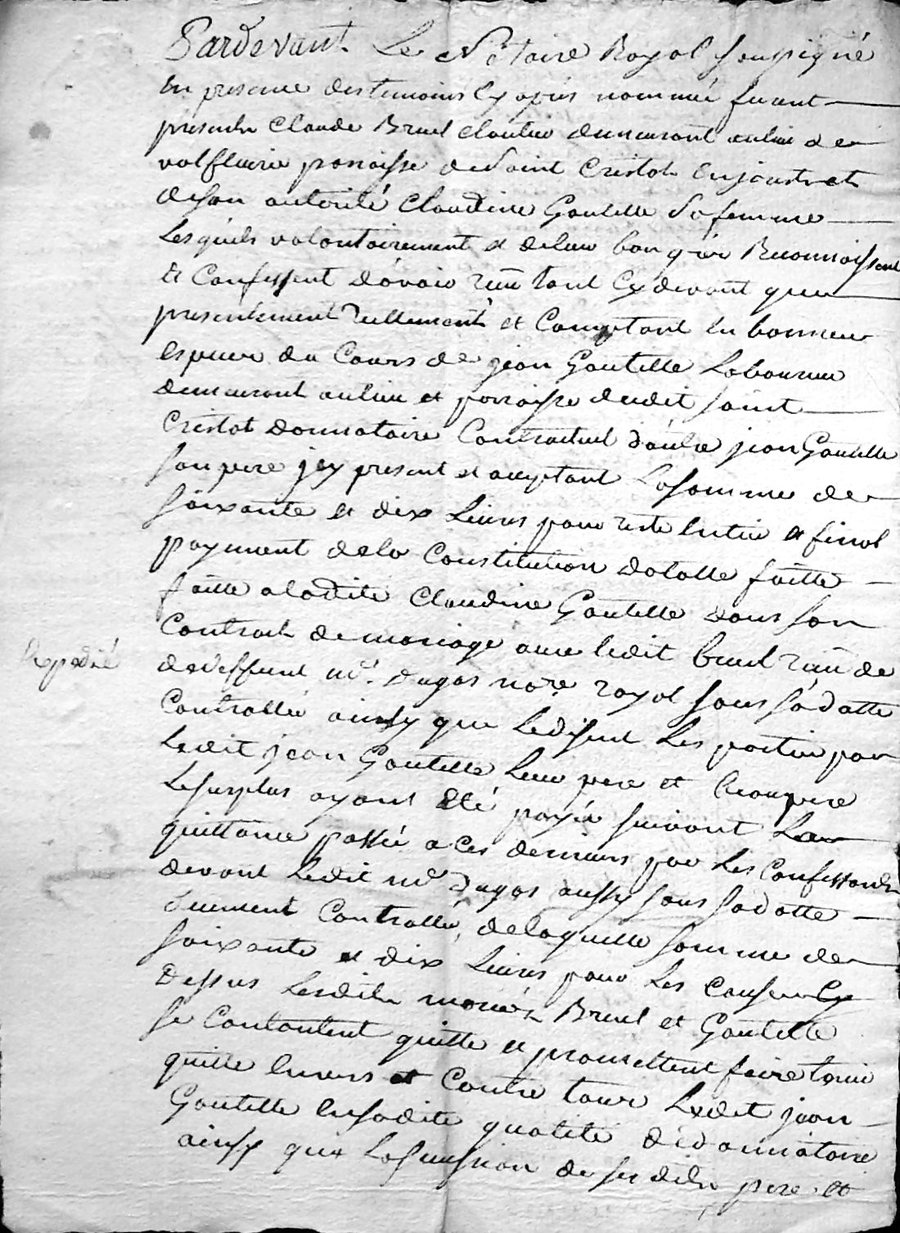 Pardevant Le Notaire Royal soussigné
En presence des temoins Cy apres nommée furent
presents Claude Breul cloutier demeurant au lieu de
valfleurie parroisse de Saint Cristot Enjonst et
de son autorité Claudine Goutelle sa femme
Lesquels volontairement et de leur bon gré Reconnoissent
et Confessent d'avoir reçu tant Cy devant que
presentement reellement et Comptant en bonnes
especes du Cours de jean Goutelle Laboureur
demeurant au lieu et parroisse dudit saint
Cristot donnataire Contractuel d'autre jean Goutelle
son pere jcy present et acceptant La somme de
soixante et dix Livres pour reste entier et final
payement de la Constitution dotalle faitte
faitte a ladite Claudine Goutelle dans son
Contract de mariage avec ledit breul reçu de
Expedié
deffunt me. Dugas nore. royal sous sa datte
Controllée ainsy que Le disent Les parties par
Ledit jean Goutelle Leur pere et beaupere
Le surplus ayant Eté payé suivant La
quittance passée a ces derniers par Les Confessants
devant Ledit me Dugas aussy sous sa datte
duement Controllée, de laquelle somme de
soixante et dix Livres pour Les Causes Cy
Dessus Lesdits mariés Breul et Goutelle
se Contentent quitte et promettent faire tenir
quitte Envers et Contre tous Ledit jean
Goutelle en sadite qualité de donnataire
ainsy que La succession de sesdits pere et